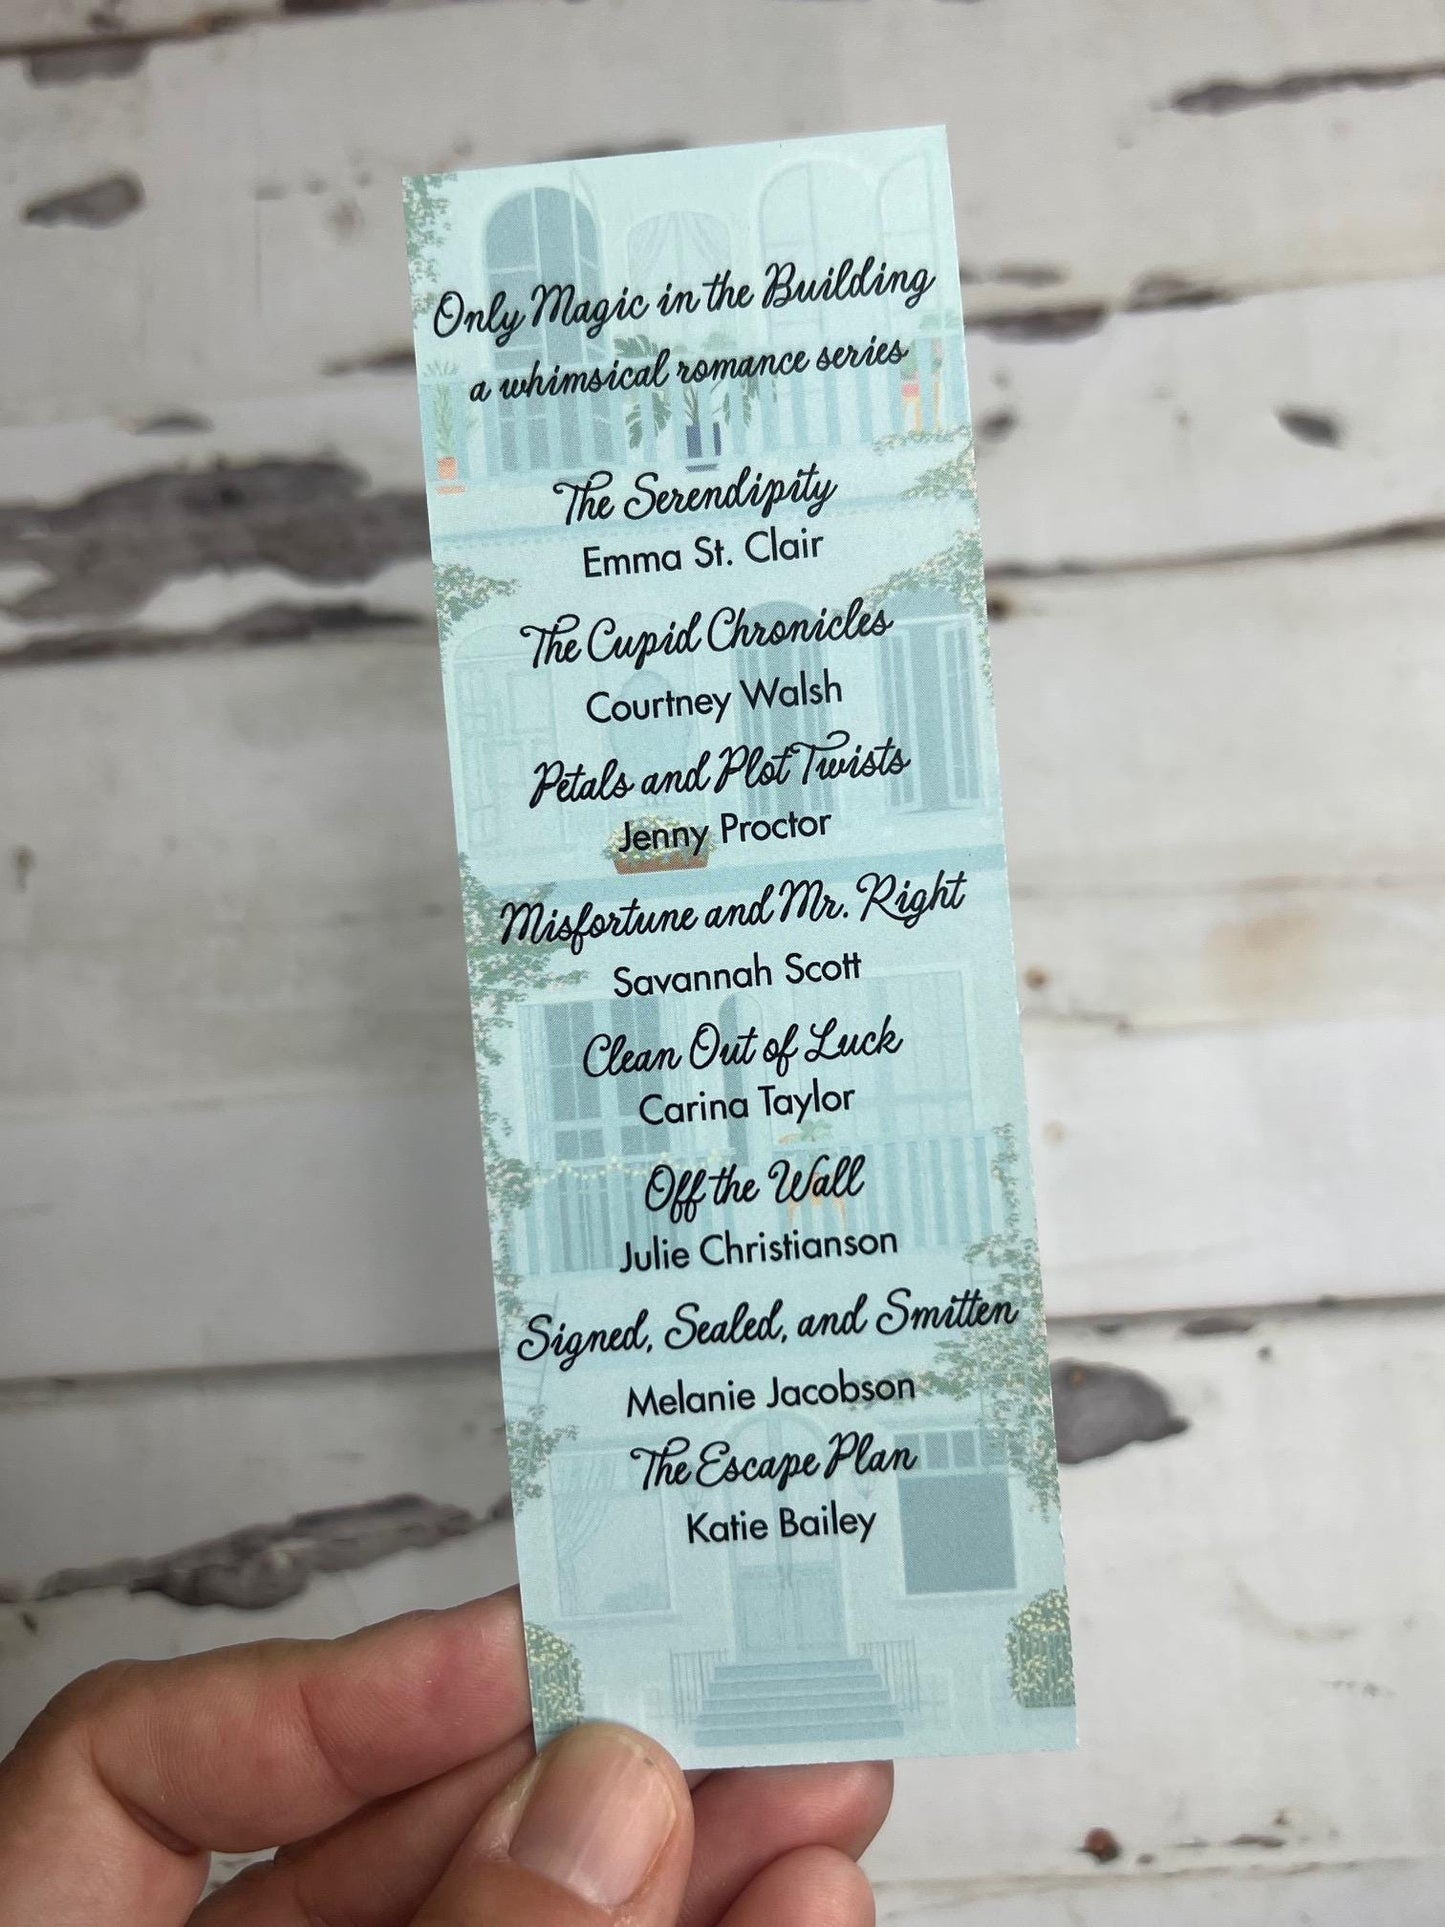 Only Magic in the Building
a whimsical romance series
The Serendipity
Emma St. Clair
The Cupid Chronicles
Courtney Walsh
Petals and Plot Twists
Jenny Proctor
Misfortune and Mr. Right
Savannah Scott
Clean Out of Luck
Carina Taylor
Off the Wall
Julie Christianson
Signed, Sealed, and Smitten
Melanie Jacobson
The Escape Plan
Katie Bailey